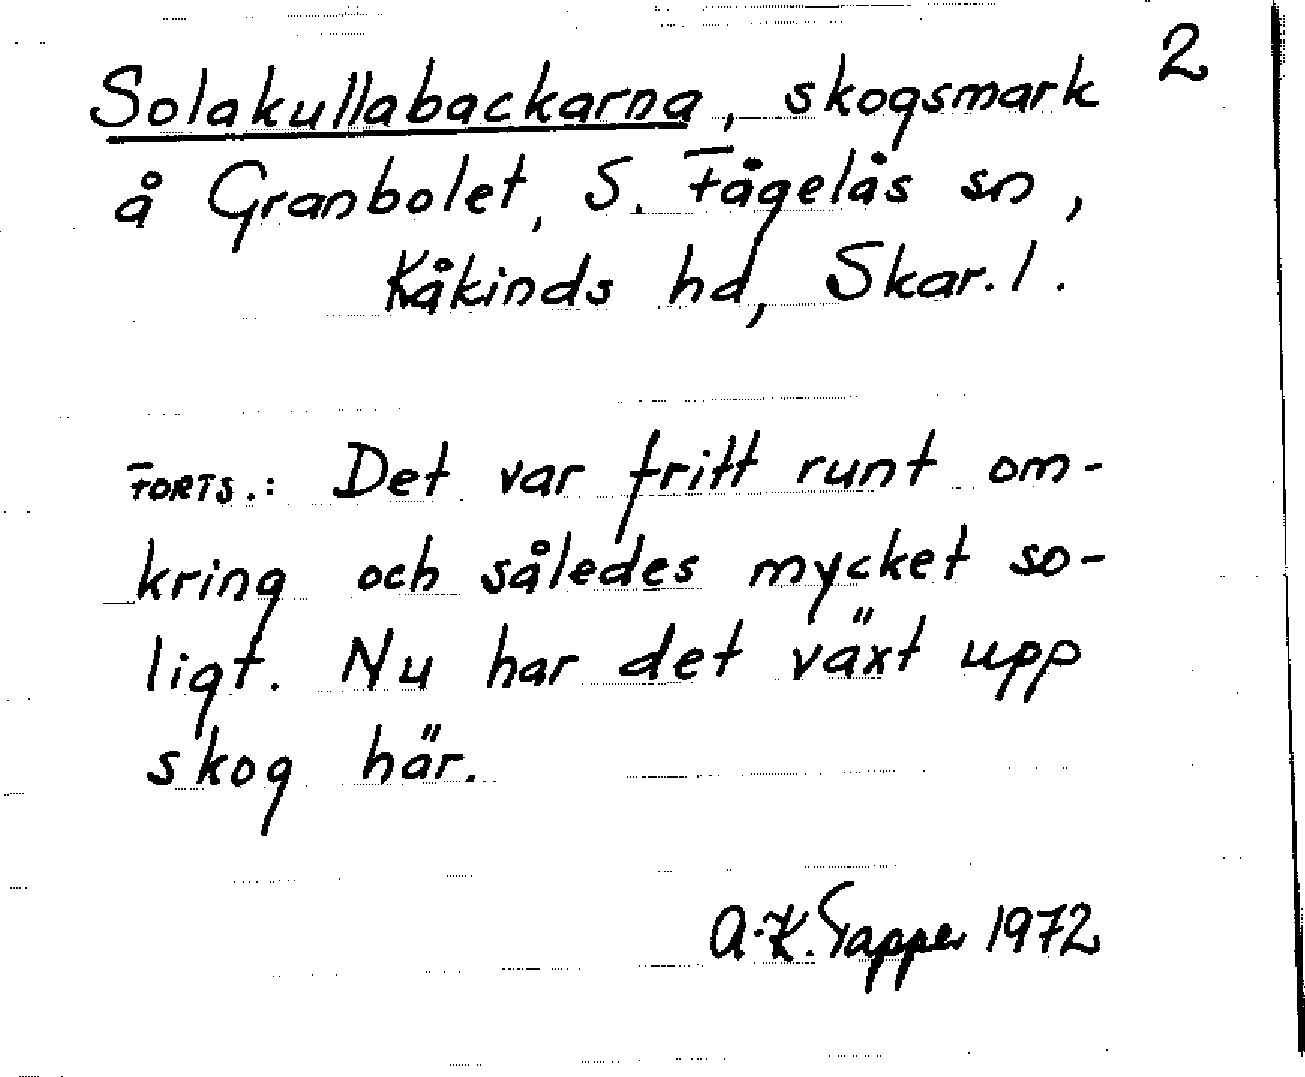 2
Solakullabackarna, skogsmark
å Granbolet, S. Fågelås sn,
Kåkinds hd, Skar. l.
FORTS.: Det var fritt runt om-
kring och således mycket so-
ligt. Nu har det växt upp
skog här.
A.-K. Tapper 1972